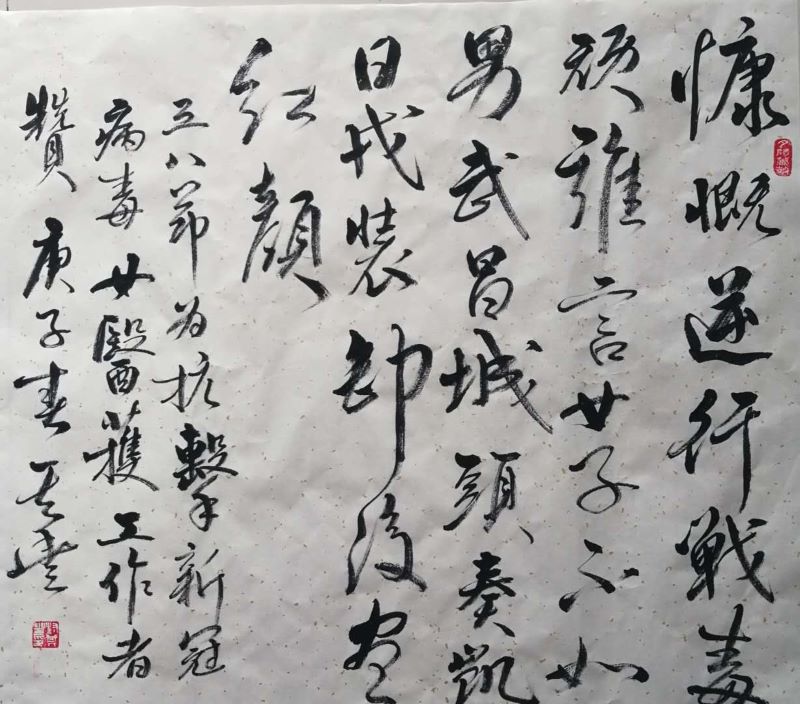 慷慨逆行戰毒
頑誰言女子不如
男武昌城頭奏凱
日戎裝卸後盡
紅顏
三八節為抗擊新冠
病毒女醫護工作者
贊庚子春